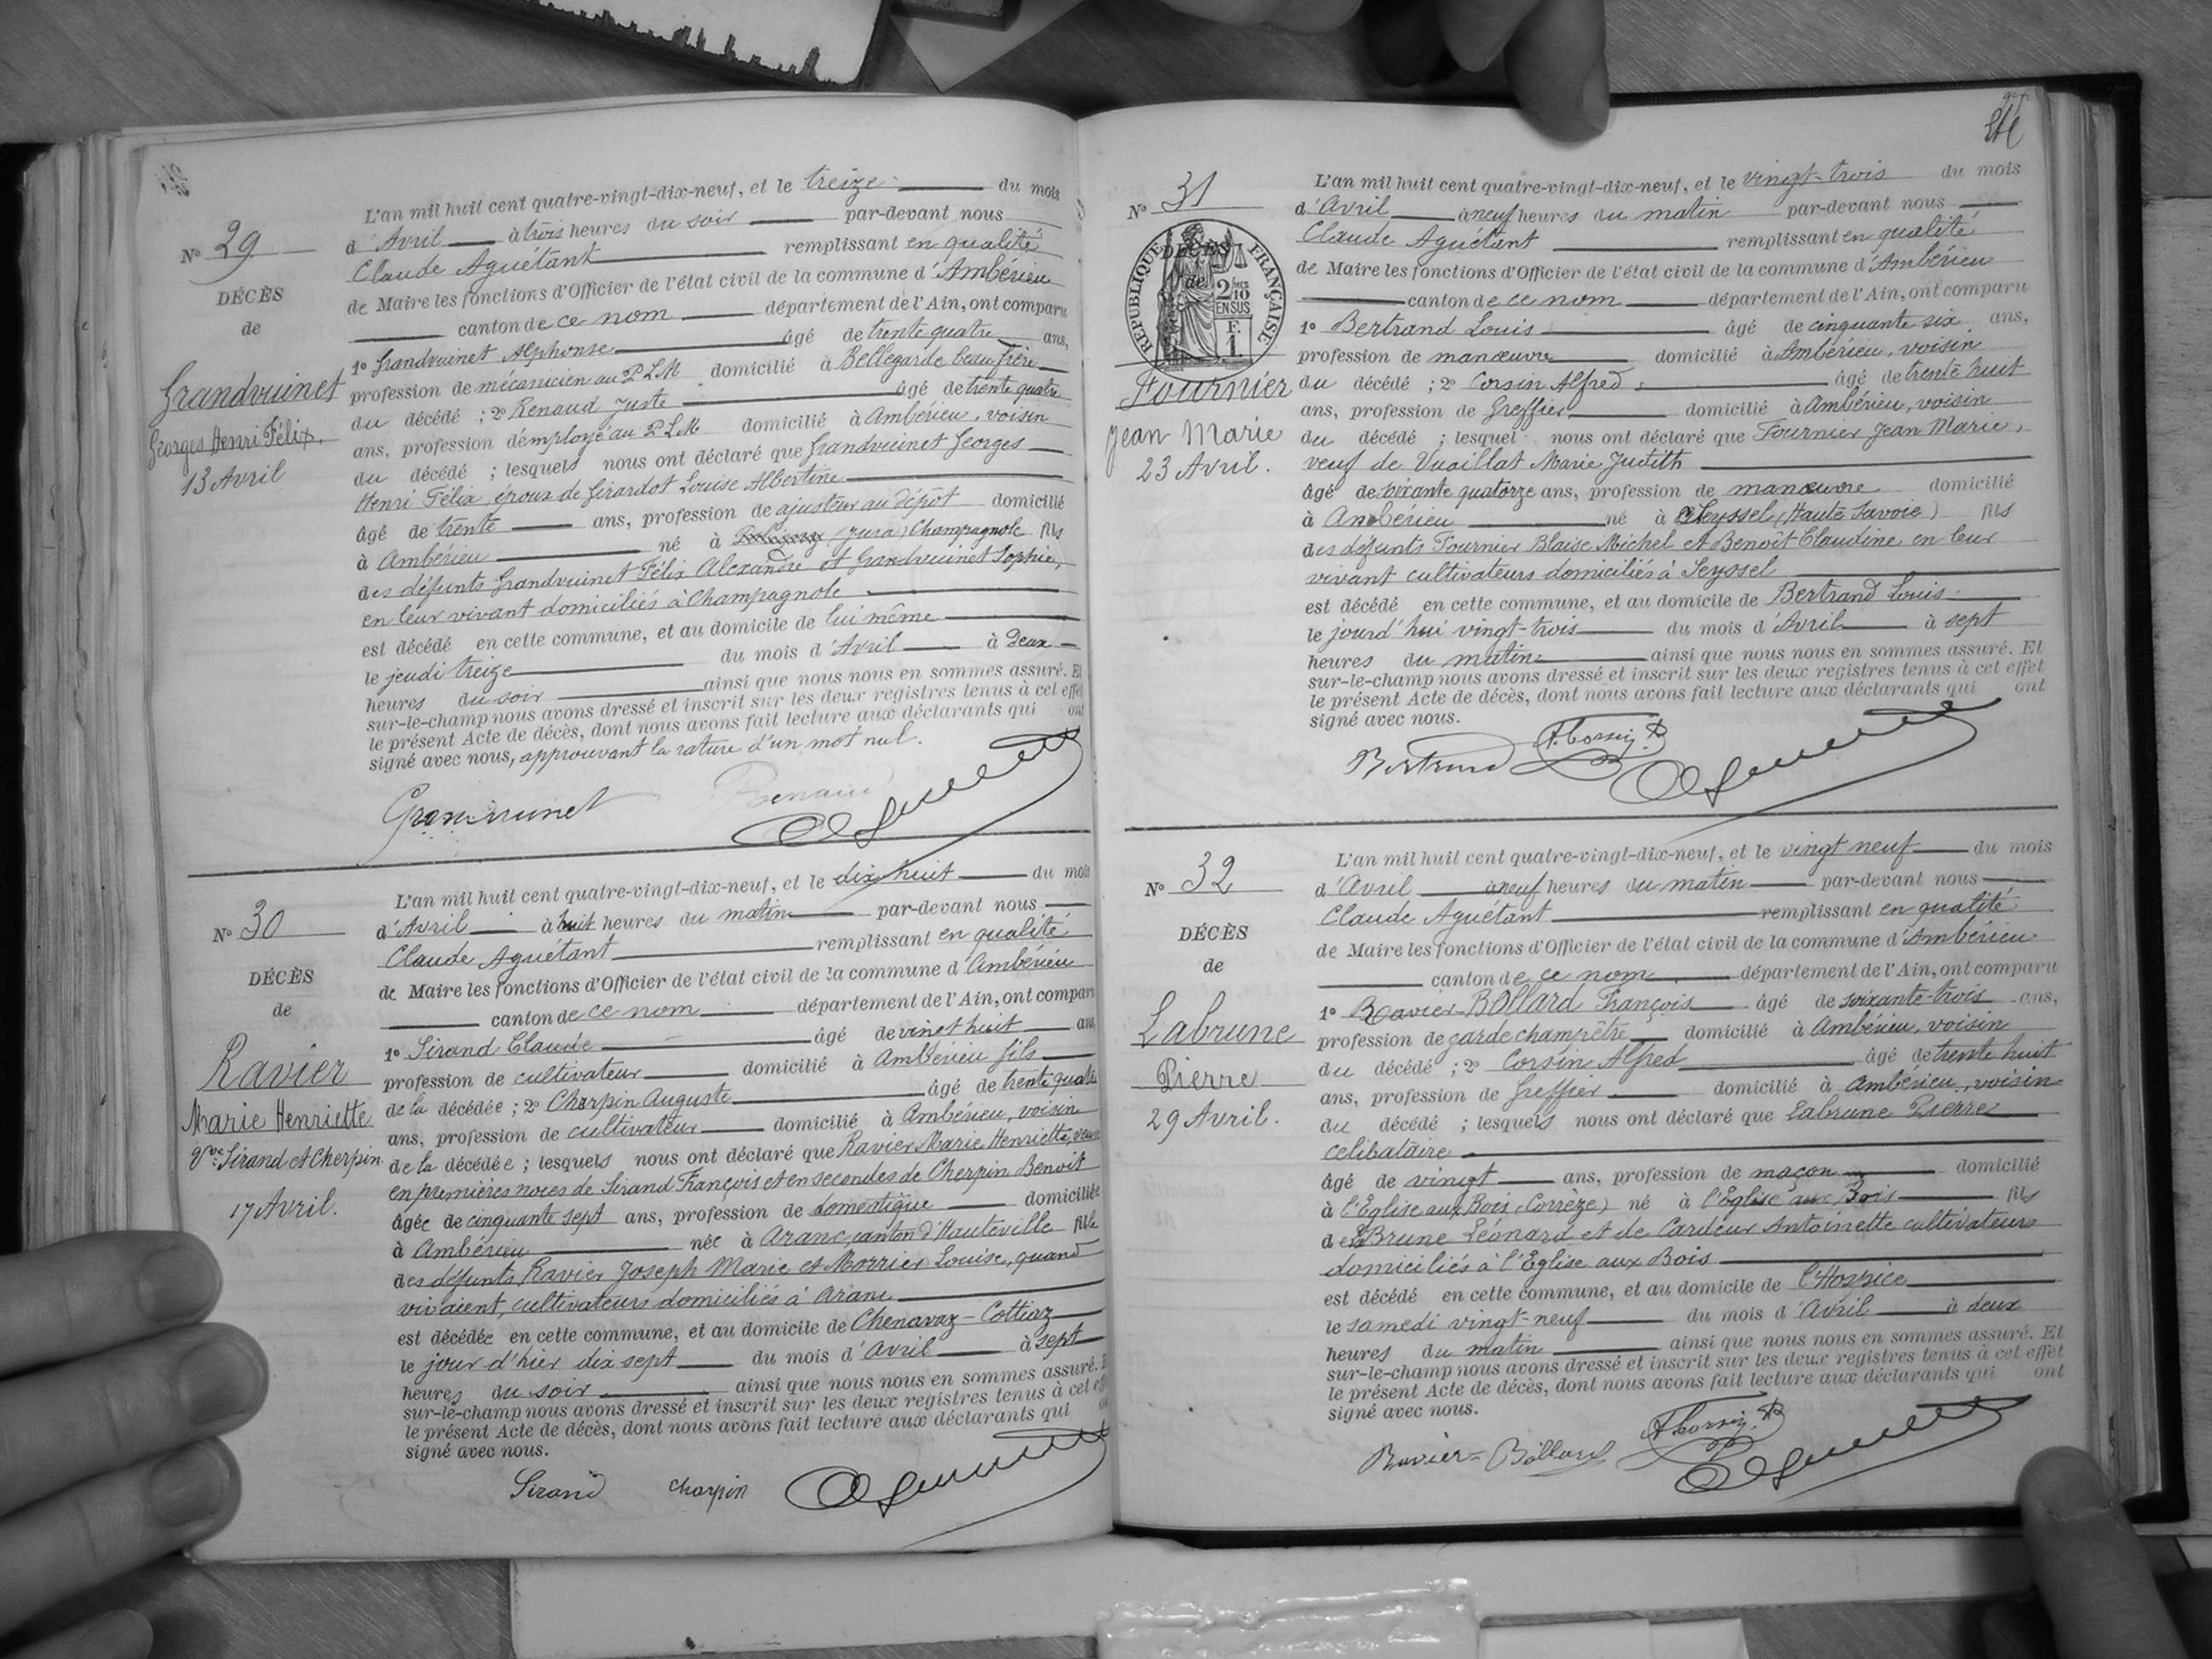 L'an mil huit cent quatre-vingt-dix-neuf, et le treize du mois
d'Avril à trois heures du soir par-devant nous
Claude Aguétant remplissant en qualité
de Maire les fonctions d'Officier de l'état civil de la commune d'Ambérieu
canton de ce nom département de l'Ain, ont comparu
1º Grandvuinet Alphonse âgé de trente quatre ans,
profession de mécanicien au PLM domicilié à Bellegarde beau frère
du décédé ; 2º Renaud Juste âgé de trente quatre
ans, profession d'employé au PLM domicilié à Ambérieu, voisin
du décédé ; lesquels nous ont déclaré que Grandvuinet Georges
Henri Félix, époux de Girardot Louise Albertine
âgé de trente ans, profession de ajusteur au dépôt domicilié
à Ambérieu né à (Jura) Champagnole fils
des défunts Grandvuinet Félix Alexandre et Grandvuinet Sophie,
en leur vivant domiciliés à Champagnole
est décédé en cette commune, et au domicile de lui même
le jeudi treize du mois d'Avril à Deux
heures du soir ainsi que nous nous en sommes assuré. Et
sur-le-champ nous avons dressé et inscrit sur les deux registres tenus à cet effet
le présent Acte de décès, dont nous avons fait lecture aux déclarants qui ont
signé avec nous, approuvant la rature d'un mot nul.
Nº 29
DÉCÈS
de
Grandvuinet
Georges Henri Félix.
13 Avril
Grandvuinet Renaud
L'an mil huit cent quatre-vingt-dix-neuf, et le dix huit du mois
d'Avril à huit heures du matin par-devant nous
Claude Aguétant remplissant en qualité
de Maire les fonctions d'Officier de l'état civil de la commune d'Ambérieu
canton de ce nom département de l'Ain, ont comparu
1º Sirand Claude âgé de vingt huit ans
profession de cultivateur domicilié à Ambérieu fils
de la décédée ; 2º Cherpin Auguste âgé de trente quatre
ans, profession de cultivateur domicilié à Ambérieu, voisin
de la décédée ; lesquels nous ont déclaré que Ravier Marie Henriette, veuve
en premières noces de Sirand François et en secondes de Cherpin Benoit
âgée de cinquante sept ans, profession de domestique domiciliée
à Ambérieu née à Aranc, canton d'Hauteville fille
des défunts Ravier Joseph Marie et Morrier Louise, quand
vivaient, cultivateurs domiciliés à Aranc
est décédée en cette commune, et au domicile de Chenavaz-Cottiaz
le jour d'hier dix sept du mois d'Avril à sept
heures du soir ainsi que nous nous en sommes assuré.
sur-le-champ nous avons dressé et inscrit sur les deux registres tenus à cet
le présent Acte de décès, dont nous avons fait lecture aux déclarants qui
signé avec nous.
Nº 30
DÉCÈS
de
Ravier
Marie Henriette
Vve Sirand et Cherpin
17 Avril.
Sirand Cherpin
L'an mil huit cent quatre-vingt-dix-neuf, et le vingt-trois du mois
d'Avril à neuf heures du matin par-devant nous
Claude Aguétant remplissant en qualité
de Maire les fonctions d'Officier de l'état civil de la commune d'Ambérieu
canton de ce nom département de l'Ain, ont comparu
1º Bertrand Louis âgé de cinquante six ans,
profession de manœuvre domicilié à Ambérieu, voisin
du décédé ; 2º Corsin Alfred âgé de trente huit
ans, profession de Greffier domicilié à Ambérieu, voisin
du décédé ; lesquel nous ont déclaré que Fournier Jean Marie,
veuf de Vuaillat Marie Judith
âgé de soixante quatorze ans, profession de manœuvre domicilié
à Ambérieu né à Seyssel (Haute Savoie) fils
des défunts Fournier Blaise Michel et Benoît Claudine en leur
vivant cultivateurs domiciliés à Seyssel
est décédé en cette commune, et au domicile de Bertrand Louis
le jourd'hui vingt-trois du mois d'Avril à sept
heures du matin ainsi que nous nous en sommes assuré. Et
sur-le-champ nous avons dressé et inscrit sur les deux registres tenus à cet effet
le présent Acte de décès, dont nous avons fait lecture aux déclarants qui ont
signé avec nous.
Nº 31
DÉCÈS
de
RÉPUBLIQUE FRANÇAISE
2/10 MES
EN SUS
F.
1.
Fournier
Jean Marie
23 Avril.
Bertrand A. Corsin
L'an mil huit cent quatre-vingt-dix-neuf, et le vingt neuf du mois
d'Avril à neuf heures du matin par-devant nous
Claude Aguétant remplissant en qualité
de Maire les fonctions d'Officier de l'état civil de la commune d'Ambérieu
canton de ce nom département de l'Ain, ont comparu
1º Ravier-Bollard François âgé de soixante-trois ans,
profession de garde champêtre domicilié à Ambérieu, voisin
du décédé ; 2º Corsin Alfred âgé de trente huit
ans, profession de Greffier domicilié à Ambérieu, voisin
du décédé ; lesquels nous ont déclaré que Labrune Pierre
célibataire
âgé de vingt ans, profession de maçon domicilié
à l'Eglise aux Bois (Corrèze) né à l'Eglise aux Bois fils
de LaBrune Léonard et de Cardeur Antoinette cultivateurs
domiciliés à l'Eglise aux Bois
est décédé en cette commune, et au domicile de l'Hospice
le samedi vingt-neuf du mois d'Avril à deux
heures du matin ainsi que nous nous en sommes assuré. Et
sur-le-champ nous avons dressé et inscrit sur les deux registres tenus à cet effet
le présent Acte de décès, dont nous avons fait lecture aux déclarants qui ont
signé avec nous.
Nº 32
DÉCÈS
de
Labrune
Pierre
29 Avril.
Ravier-Bollard A. Corsin